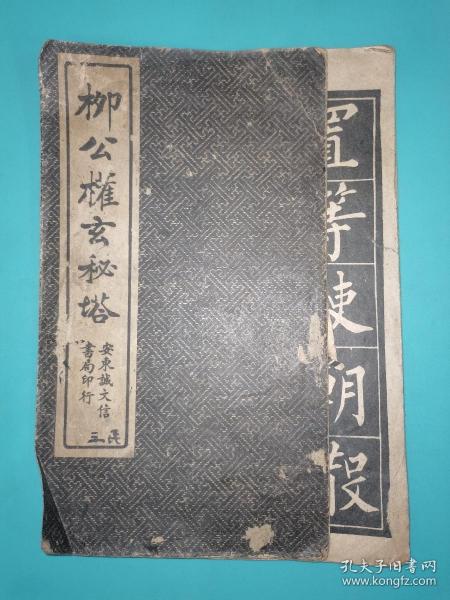 柳公權玄秘塔
安東誠文信
書局印行
三
置
等
使
朝
散
孔夫子旧书网
www.kongfz.com